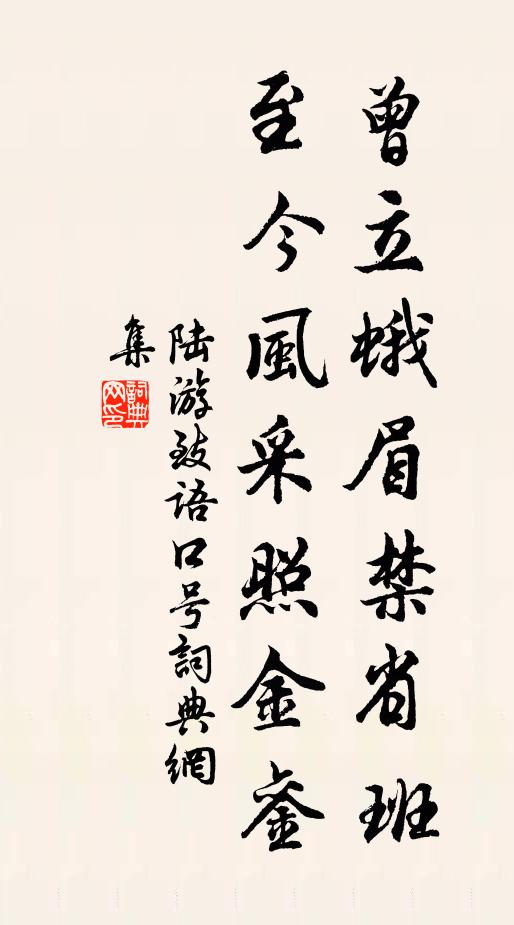 曾立蛾眉禁省班
至今風采照金銮
陸游致語口号詞典網
集
詞典
网印